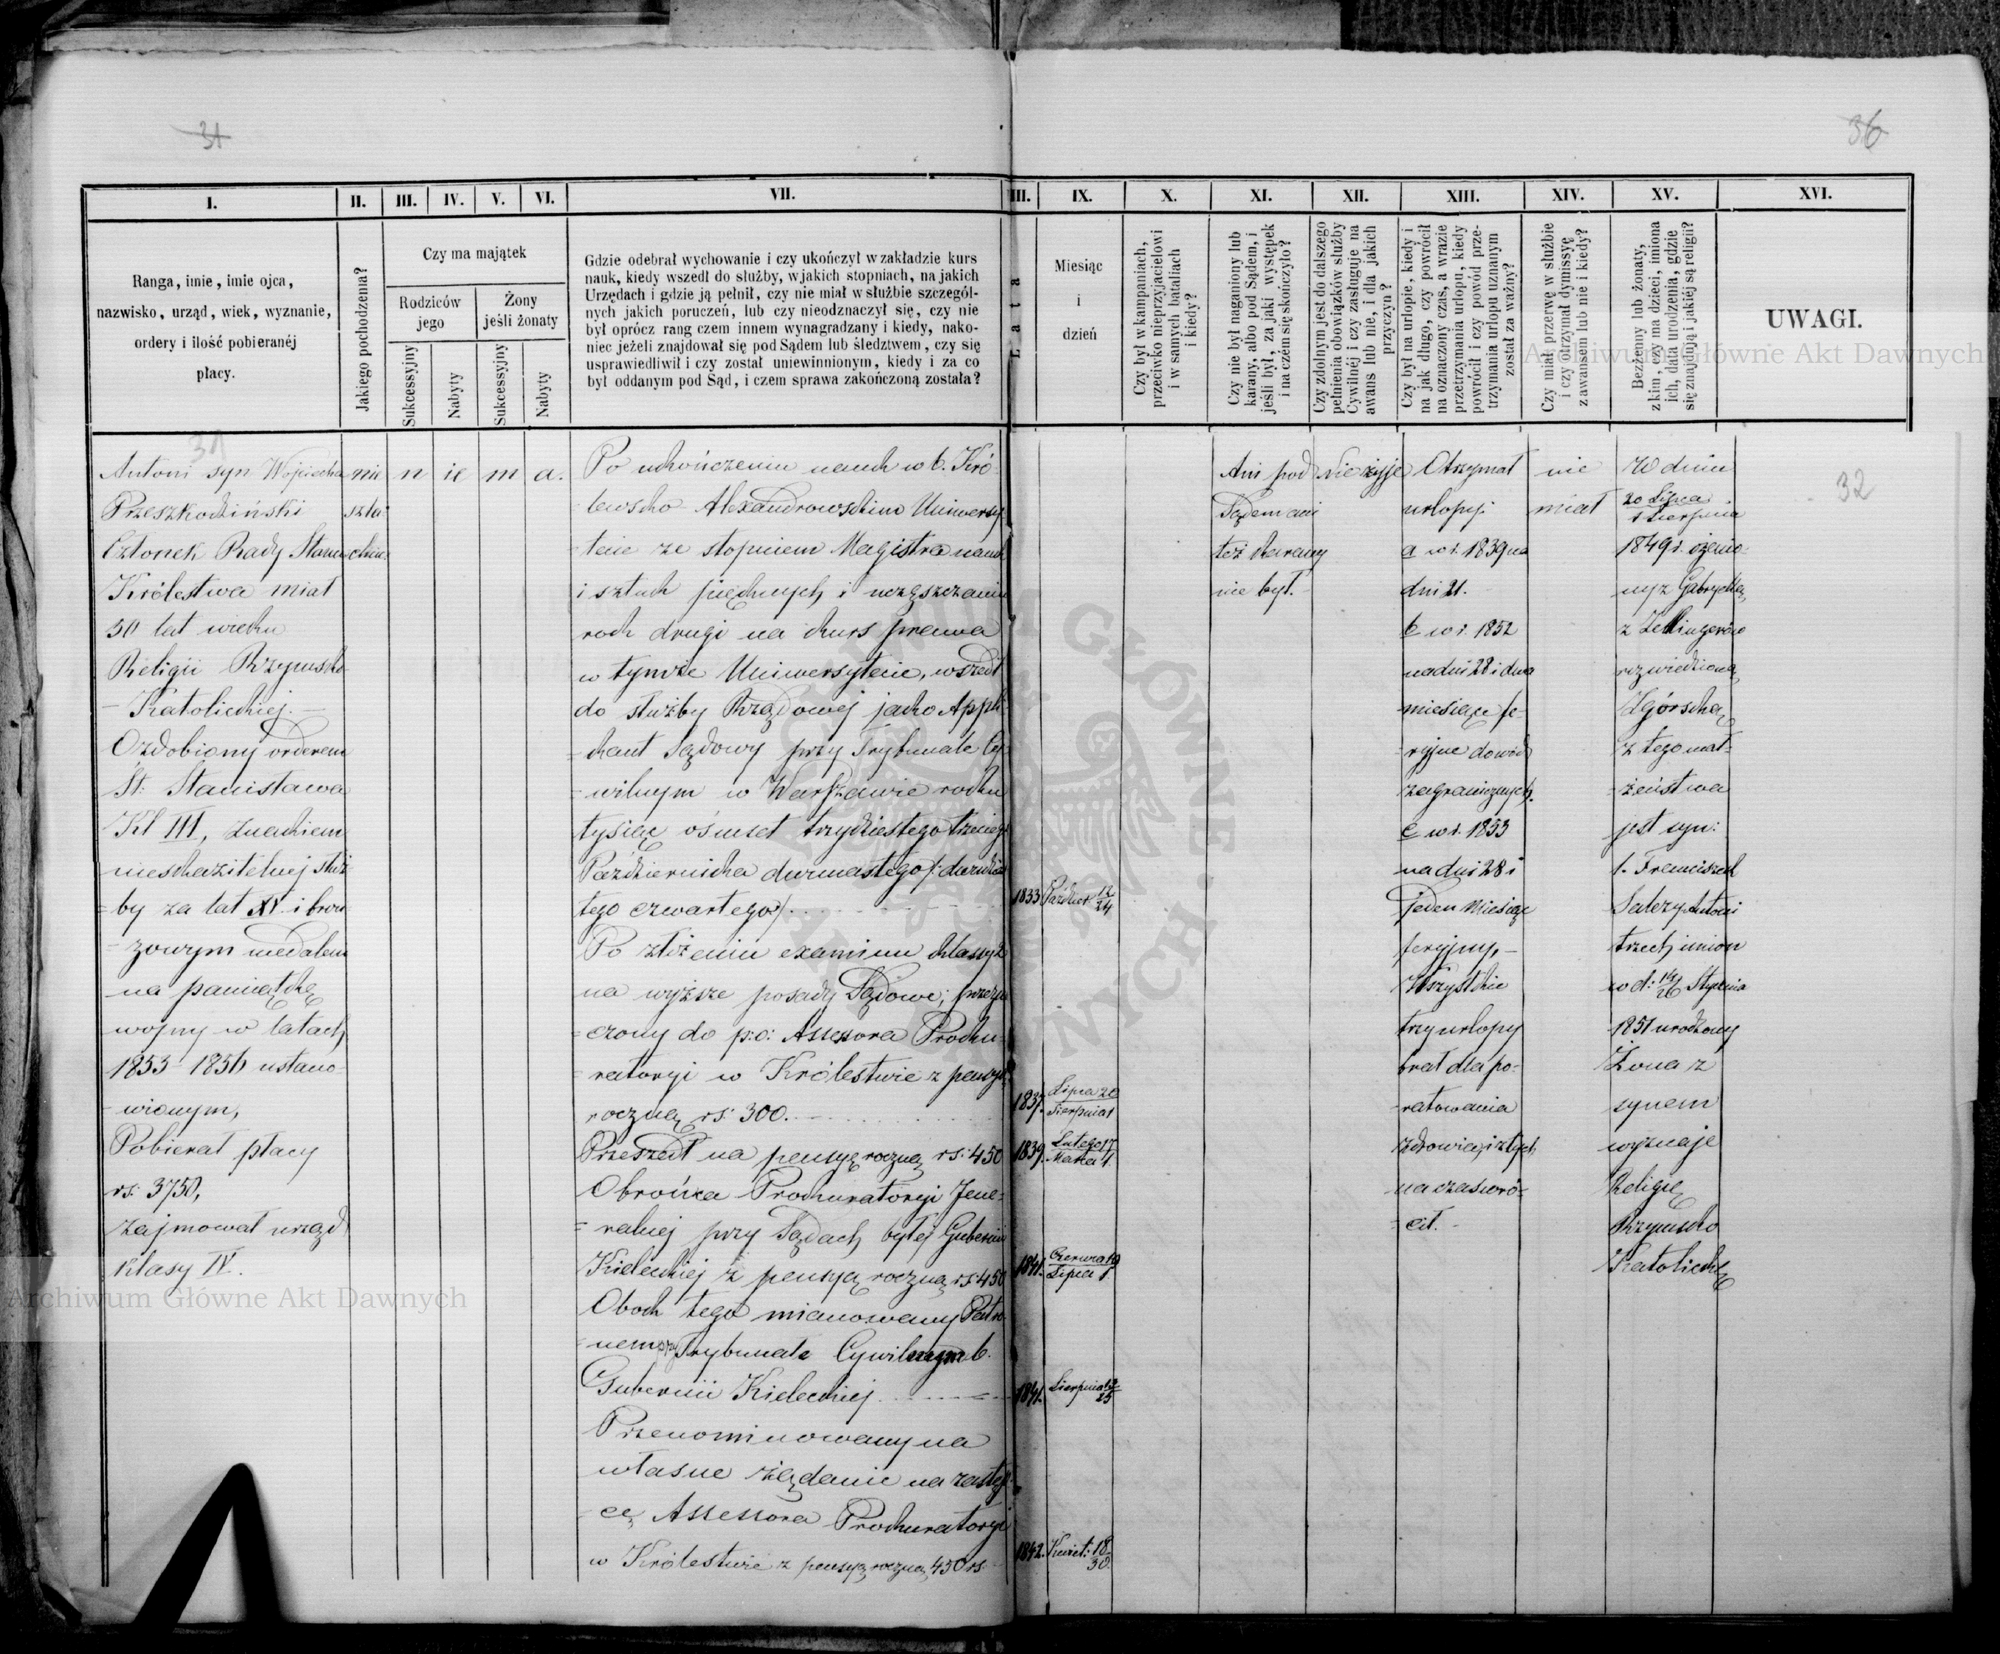 31
36
I.
II.
III.
IV.
V.
VI.
VII.
VIII.
IX.
X.
XI.
XII.
XIII.
XIV.
XV.
XVI.
Ranga, imie, imie ojca,
nazwisko, urząd, wiek, wyznanie,
ordery i ilość pobieranéj
płacy.
Jakiego pochodzenia?
Czy ma majątek
Rodziców
jego
Żony
jeśli żonaty
Sukcessyjny
Nabyty
Sukcessyjny
Nabyty
Gdzie odebrał wychowanie i czy ukończył w zakładzie kurs
nauk, kiedy wszedł do służby, w jakich stopniach, na jakich
Urzędach i gdzie ją pełnił, czy nie miał w służbie szczegól-
nych jakich poruczeń, lub czy nieodznaczył się, czy nie
był oprócz rang czem innem wynagradzany i kiedy, nako-
niec jeżeli znajdował się pod Sądem lub śledztwem, czy się
usprawiedliwił i czy został uniewinnionym, kiedy i za co
był oddanym pod Sąd, i czem sprawa zakończoną została?
Lata
Miesiąc
i
dzień
Czy był w kampaniach,
przeciwko nieprzyjacielowi
i w samych bataliach
i kiedy?
Czy nie był naganiony lub
karany, albo pod Sądem, i
jeśli był, za jaki występek
i na czem się skończyło?
Czy zdolnym jest do dalszego
pełnienia obowiązków służby
Cywilnéj i czy zasługuje na
awans lub nie, i dla jakich
przyczyn?
Czy był na urlopie, kiedy i
na jak długo, czy powrócił
na oznaczony czas, a w razie
przetrzymania urlopu, kiedy
powrócił i czy powód prze-
trzymania urlopu uznanym
został za ważny?
Czy miał przerwę w służbie
i czy otrzymał dymissyę
z awansem lub nie i kiedy?
Bezżenny lub żonaty,
z kim, czy ma dzieci, imiona
ich, data urodzenia, gdzie
się znajdują i jakiéj są religii?
UWAGI.
31
Antoni syn Wojciecha
Przeszkodziński
Członek Rady Stanu
Królestwa miał
50 lat wieku
Religii Rzymsko
- Katolickiej. -
Ozdobiony orderem
St: Stanisława
Kl III, znakiem
nieskazitelnej służ
= by za lat XV i bron
= zowym medalem
na pamiątkę
wojny w latach
1853 - 1856 ustano-
- wionym,
Pobierał płacy
rs: 3750,
Zajmował urząd
Klasy IV.
nie
szla
chec.
n ie m a.
Po ukończeniu nauk w b. Kró-
lewsko Alexandrowskim Uniwersy
= tecie ze stopniem Magistra nauk
i sztuk pięknych i uczęszczaniu
rok drugi na kurs prawa
w tymże Uniwersytecie, wszedł
do służby Rządowej jako Appli
= kant Sądowy przy Trybunale Cy
= wilnym w Warszawie roku
tysiąc ośmset trzydziestego trzeciego
Października dwunastego /: dwudzies
tego czwartego :/
1833 Paździer: 12/24
Po złożeniu examinu klassy
na wyższe posady Sądowe; przezna
= czony do p:o: Assessora Proku
= ratoryi w Królestwie z pensyą
roczną rs: 300.
1837. Lipca 20/Sierpnia 1
Przeszedł na pensyę roczną rs: 450
1839. Lutego 17/Marca 1.
Obrońca Prokuratoryi Jene-
= ralnej przy Sądach byłej Gubernii
Kieleckiej z pensyą roczną rs: 450
1841. Czerwca 19/Lipca 1.
Obok tego mianowany Patro
= nem przy Trybunale Cywilnym b.
Gubernii Kieleckiej
1841. Sierpnia 13/25
Przenominowany na
własne żądanie na zastęp
= cę Assessora Prokuratoryi
w Królestwie z pensyą roczną 450 rs.
1842. Kwiet: 18/30.
Ani pod
Sądem ani
też karany
nie był. -
nie żyje
Otrzymał
urlopy:
a w r. 1839 na
dni 21.
b w r. 1852
na dni 28 i dwa
miesiące fe-
- ryjne do wód
zagranicznych.
c w r. 1853
na dni 28 i
jeden miesiąc
feryjny, -
Wszystkie
trzy urlopy
brał dla po-
- ratowania
zdrowia, i z tych
na czas wró-
= cił. -
nie
miał
W dniu
20 Lipca/1 Sierpnia
1849 r. ożenio-
ny z Gabryellą
z Zellingerów
rozwiedzioną
Zgórską
z tego mał-
- żeństwa
jest syn:
1. Franciszek
Salezy Antoni
trzech imion
w d: 14/26 Stycznia
1851 urodzony
Żona z
synem
wyznaje
Religię
Rzymsko
Katolicką
32
Archiwum Główne Akt Dawnych
Archiwum Główne Akt Dawnych
ARCHIWUM GŁÓWNE · AKT DAWNYCH ·